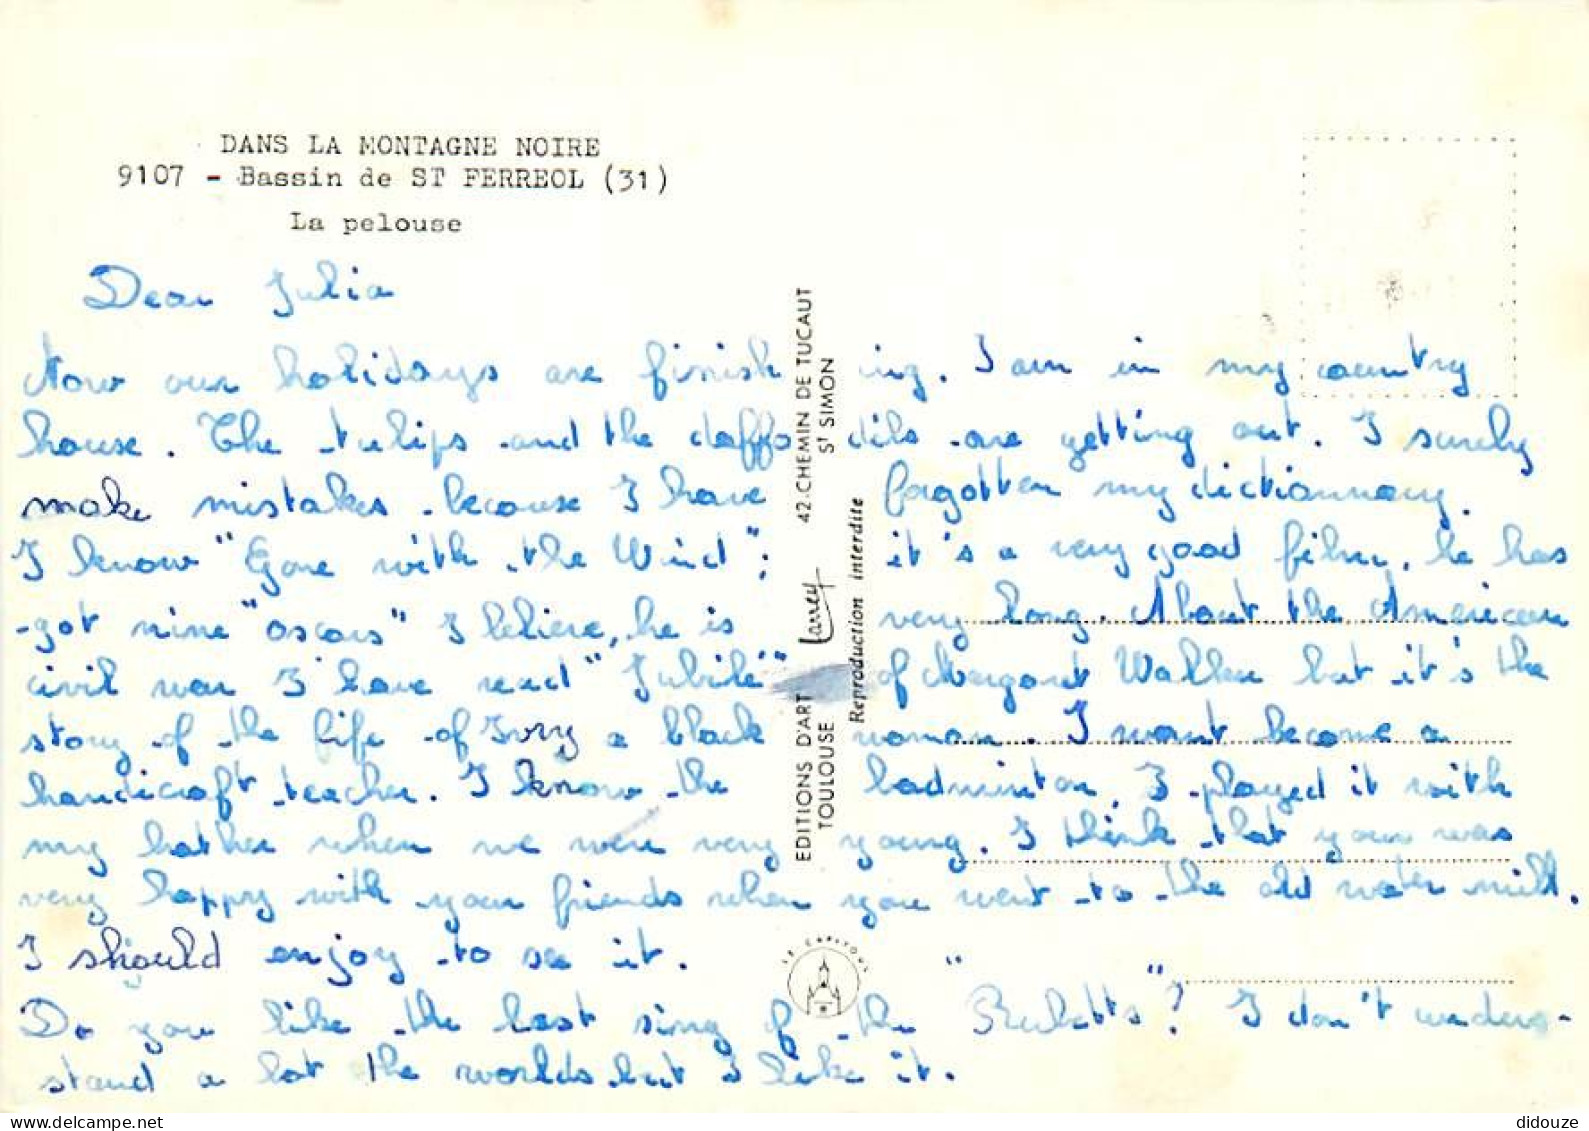 DANS LA MONTAGNE NOIRE
9107 - Bassin de ST FERREOL (31)
La pelouse
Dear Julia
Now our holidays are finishing. I am in my country
house. The tulips and the daffodils are getting out. I surely
make mistakes because I have forgotten my dictionnary.
I know "Gone with the Wind"; it's a very good film, he has
got nine "oscars" I beliere, he is very long. About the American
civil war I have read "Jubilé" of Margaret Walker but it's the
story of the life of Ivry a black woman. I want become a
handicraft teacher. I know the badminton, I played it with
my brother when we were very young. I think that your was
very happy with your friends when you went to the old water mill.
I should enjoy to see it.
Do you like the last sing of the "Rubetts"? I don't unders-
tand a lot the worlds but I like it.
EDITIONS D'ART Larrey 42.CHEMIN DE TUCAUT
TOULOUSE ST SIMON
Reproduction interdite
LE CAPITOLE
didouze